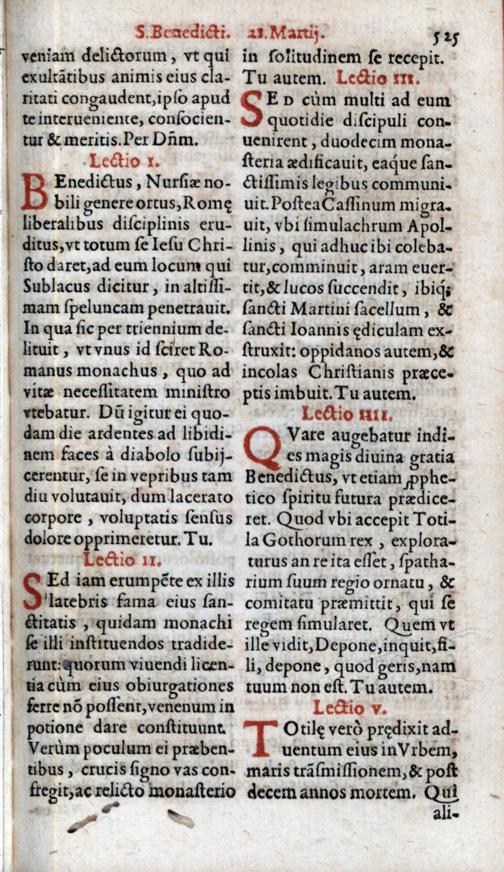 S. Benedicti. 21. Martij. 525
veniam delictorum, vt qui
exultãtibus animis eius cla-
ritati congaudent, ipſo apud
te interueniente, conſocien-
tur & meritis. Per Dñm.
Lectio I.
BEnedictus, Nurſiæ no-
bili genere ortus, Romę
liberalibus diſciplinis eru-
ditus, vt totum ſe Ieſu Chri-
ſto daret, ad eum locum qui
Sublacus dicitur, in altiſſi-
mam ſpeluncam penetrauit.
In qua ſic per triennium de-
lituit, vt vnus id ſciret Ro-
manus monachus, quo ad
vitæ neceſſitatem miniſtro
vtebatur. Dũ igitur ei quo-
dam die ardentes ad libidi-
nem faces à diabolo ſubij-
cerentur, ſe in vepribus tam
diu volutauit, dum lacerato
corpore, voluptatis ſenſus
dolore opprimeretur. Tu.
Lectio II.
SEd iam erumpẽte ex illis
latebris fama eius ſan-
ctitatis, quidam monachi
ſe illi inſtituendos tradide-
runt: quorum viuendi licen-
tia cùm eius obiurgationes
ferre nõ poſſent, venenum in
potione dare conſtituunt.
Verùm poculum ei præben-
tibus, crucis ſigno vas con-
fregit, ac relicto monaſterio
in ſolitudinem ſe recepit.
Tu autem. Lectio III.
SED cùm multi ad eum
quotidie diſcipuli con-
uenirent, duodecim mona-
ſteria ædificauit, eaque ſan-
ctiſſimis legibus communi-
uit. Poſtea Caſſinum migra-
uit, vbi ſimulachrum Apol-
linis, qui adhuc ibi coleba-
tur, comminuit, aram euer-
tit, & lucos ſuccendit, ibiq;
ſancti Martini ſacellum, &
ſancti Ioannis ędiculam ex-
ſtruxit: oppidanos autem, &
incolas Chriſtianis præce-
ptis imbuit. Tu autem.
Lectio IIII.
QVare augebatur indi-
es magis diuina gratia
Benedictus, vt etiam ꝓphe-
tico ſpiritu futura prædice-
ret. Quod vbi accepit Toti-
la Gothorum rex, explora-
turus an re ita eſſet, ſpatha-
rium ſuum regio ornatu, &
comitatu præmittit, qui ſe
regem ſimularet. Quem vt
ille vidit, Depone, inquit, fi-
li, depone, quod geris, nam
tuum non eſt. Tu autem.
Lectio V.
TOtilę verò pрędixit ad-
uentum eius in Vrbem,
maris trãſmiſſionem, & poſt
decem annos mortem. Qui
ali-